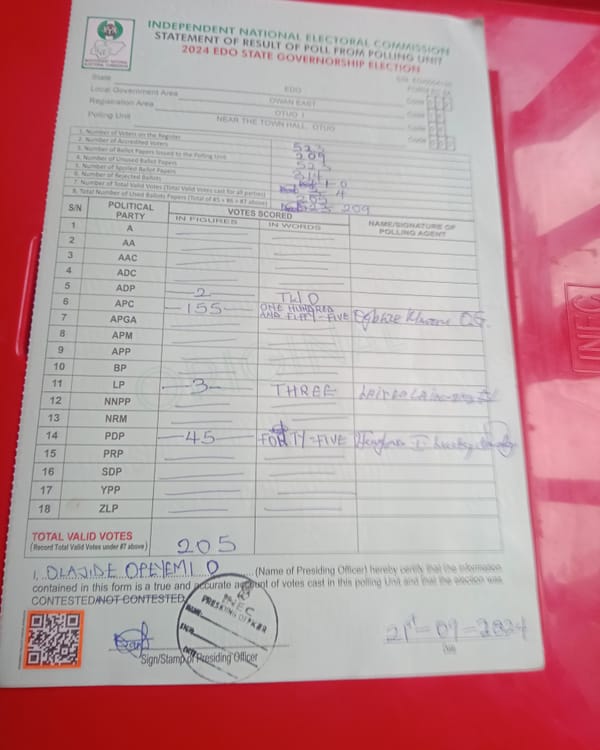 INDEPENDENT NATIONAL ELECTORAL COMMISSION
STATEMENT OF RESULT OF POLL FROM POLLING UNIT
2024 EDO STATE GOVERNORSHIP ELECTION
State EDO
Local Government Area OWAN EAST Code
Registration Area OTUO I Code
Polling Unit NEAR THE TOWN HALL, OTUO Code
1. Number of Voters on the Register
2. Number of Accredited Voters 209
3. Number of Ballot Papers Issued to the Polling Unit
4. Number of Unused Ballot Papers 314
5. Number of Spoiled Ballot Papers
6. Number of Rejected Ballots 4
7. Number of Total Valid Votes (Total Valid Votes cast for all parties) 205
8. Total Number of Used Ballots Papers (Total of #5 + #6 + #7 above) 209
S/N POLITICAL PARTY VOTES SCORED NAME/SIGNATURE OF POLLING AGENT
IN FIGURES IN WORDS
1 A
2 AA
3 AAC
4 ADC
5 ADP 2 TWO
6 APC 155 ONE HUNDRED AND FIFTY-FIVE
7 APGA
8 APM
9 APP
10 BP
11 LP 3 THREE
12 NNPP
13 NRM
14 PDP 45 FORTY-FIVE
15 PRP
16 SDP
17 YPP
18 ZLP
TOTAL VALID VOTES
(Record Total Valid Votes under #7 above) 205
I, OLAJIDE OPEYEMI O (Name of Presiding Officer) hereby certify that the information
contained in this form is a true and accurate account of votes cast in this polling Unit and that the election was
CONTESTED/NOT CONTESTED
INEC
PRESIDING OFFICER
NAME
SIGN
DATE
21st-09-2024
Sign/Stamp of Presiding Officer
Date
INEC